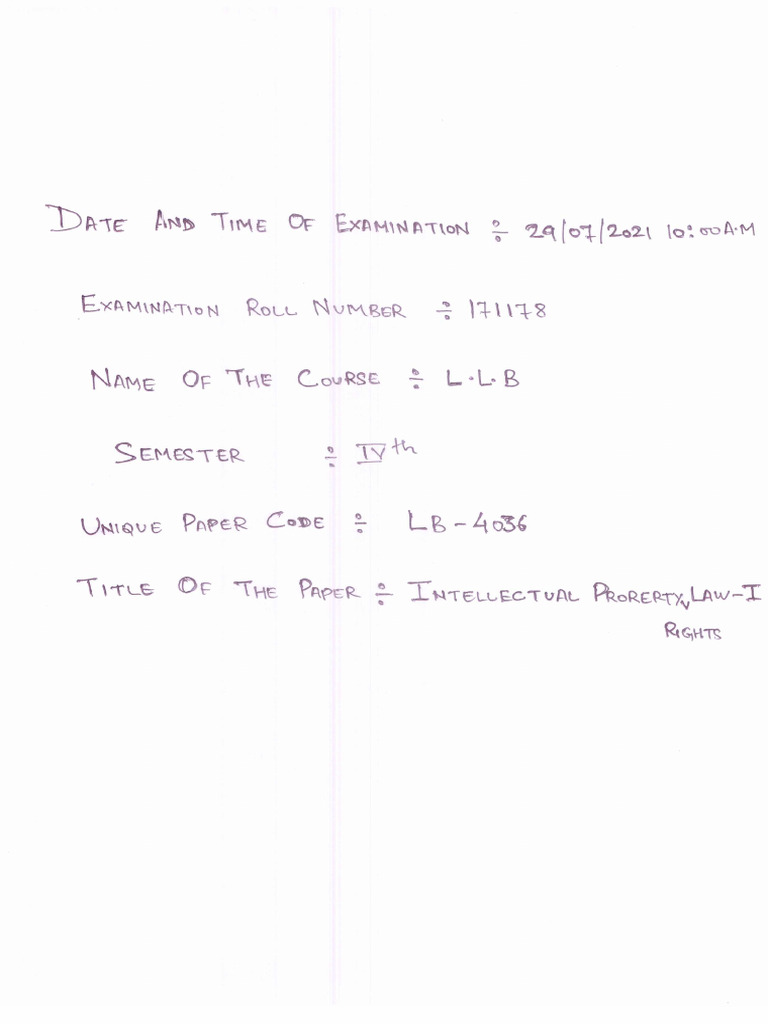 DATE AND TIME OF EXAMINATION ÷ 29/07/2021 10:00A.M
EXAMINATION ROLL NUMBER ÷ 171178
NAME OF THE COURSE ÷ L.L.B
SEMESTER ÷ IVth
UNIQUE PAPER CODE ÷ LB-4036
TITLE OF THE PAPER ÷ INTELLECTUAL PRORERTY, LAW-I
RIGHTS